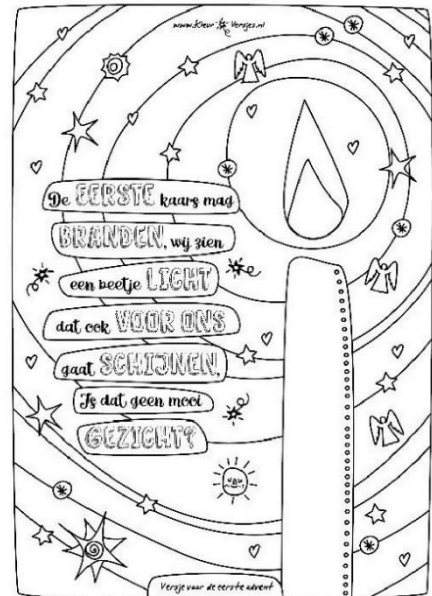 www.Kleur Versjes.nl
De EERSTE kaars mag
BRANDEN, wij zien
een beetje LICHT
dat ook VOOR ONS
gaat SCHIJNEN.
Is dat geen mooi
GEZICHT?
Versje voor de eerste advent